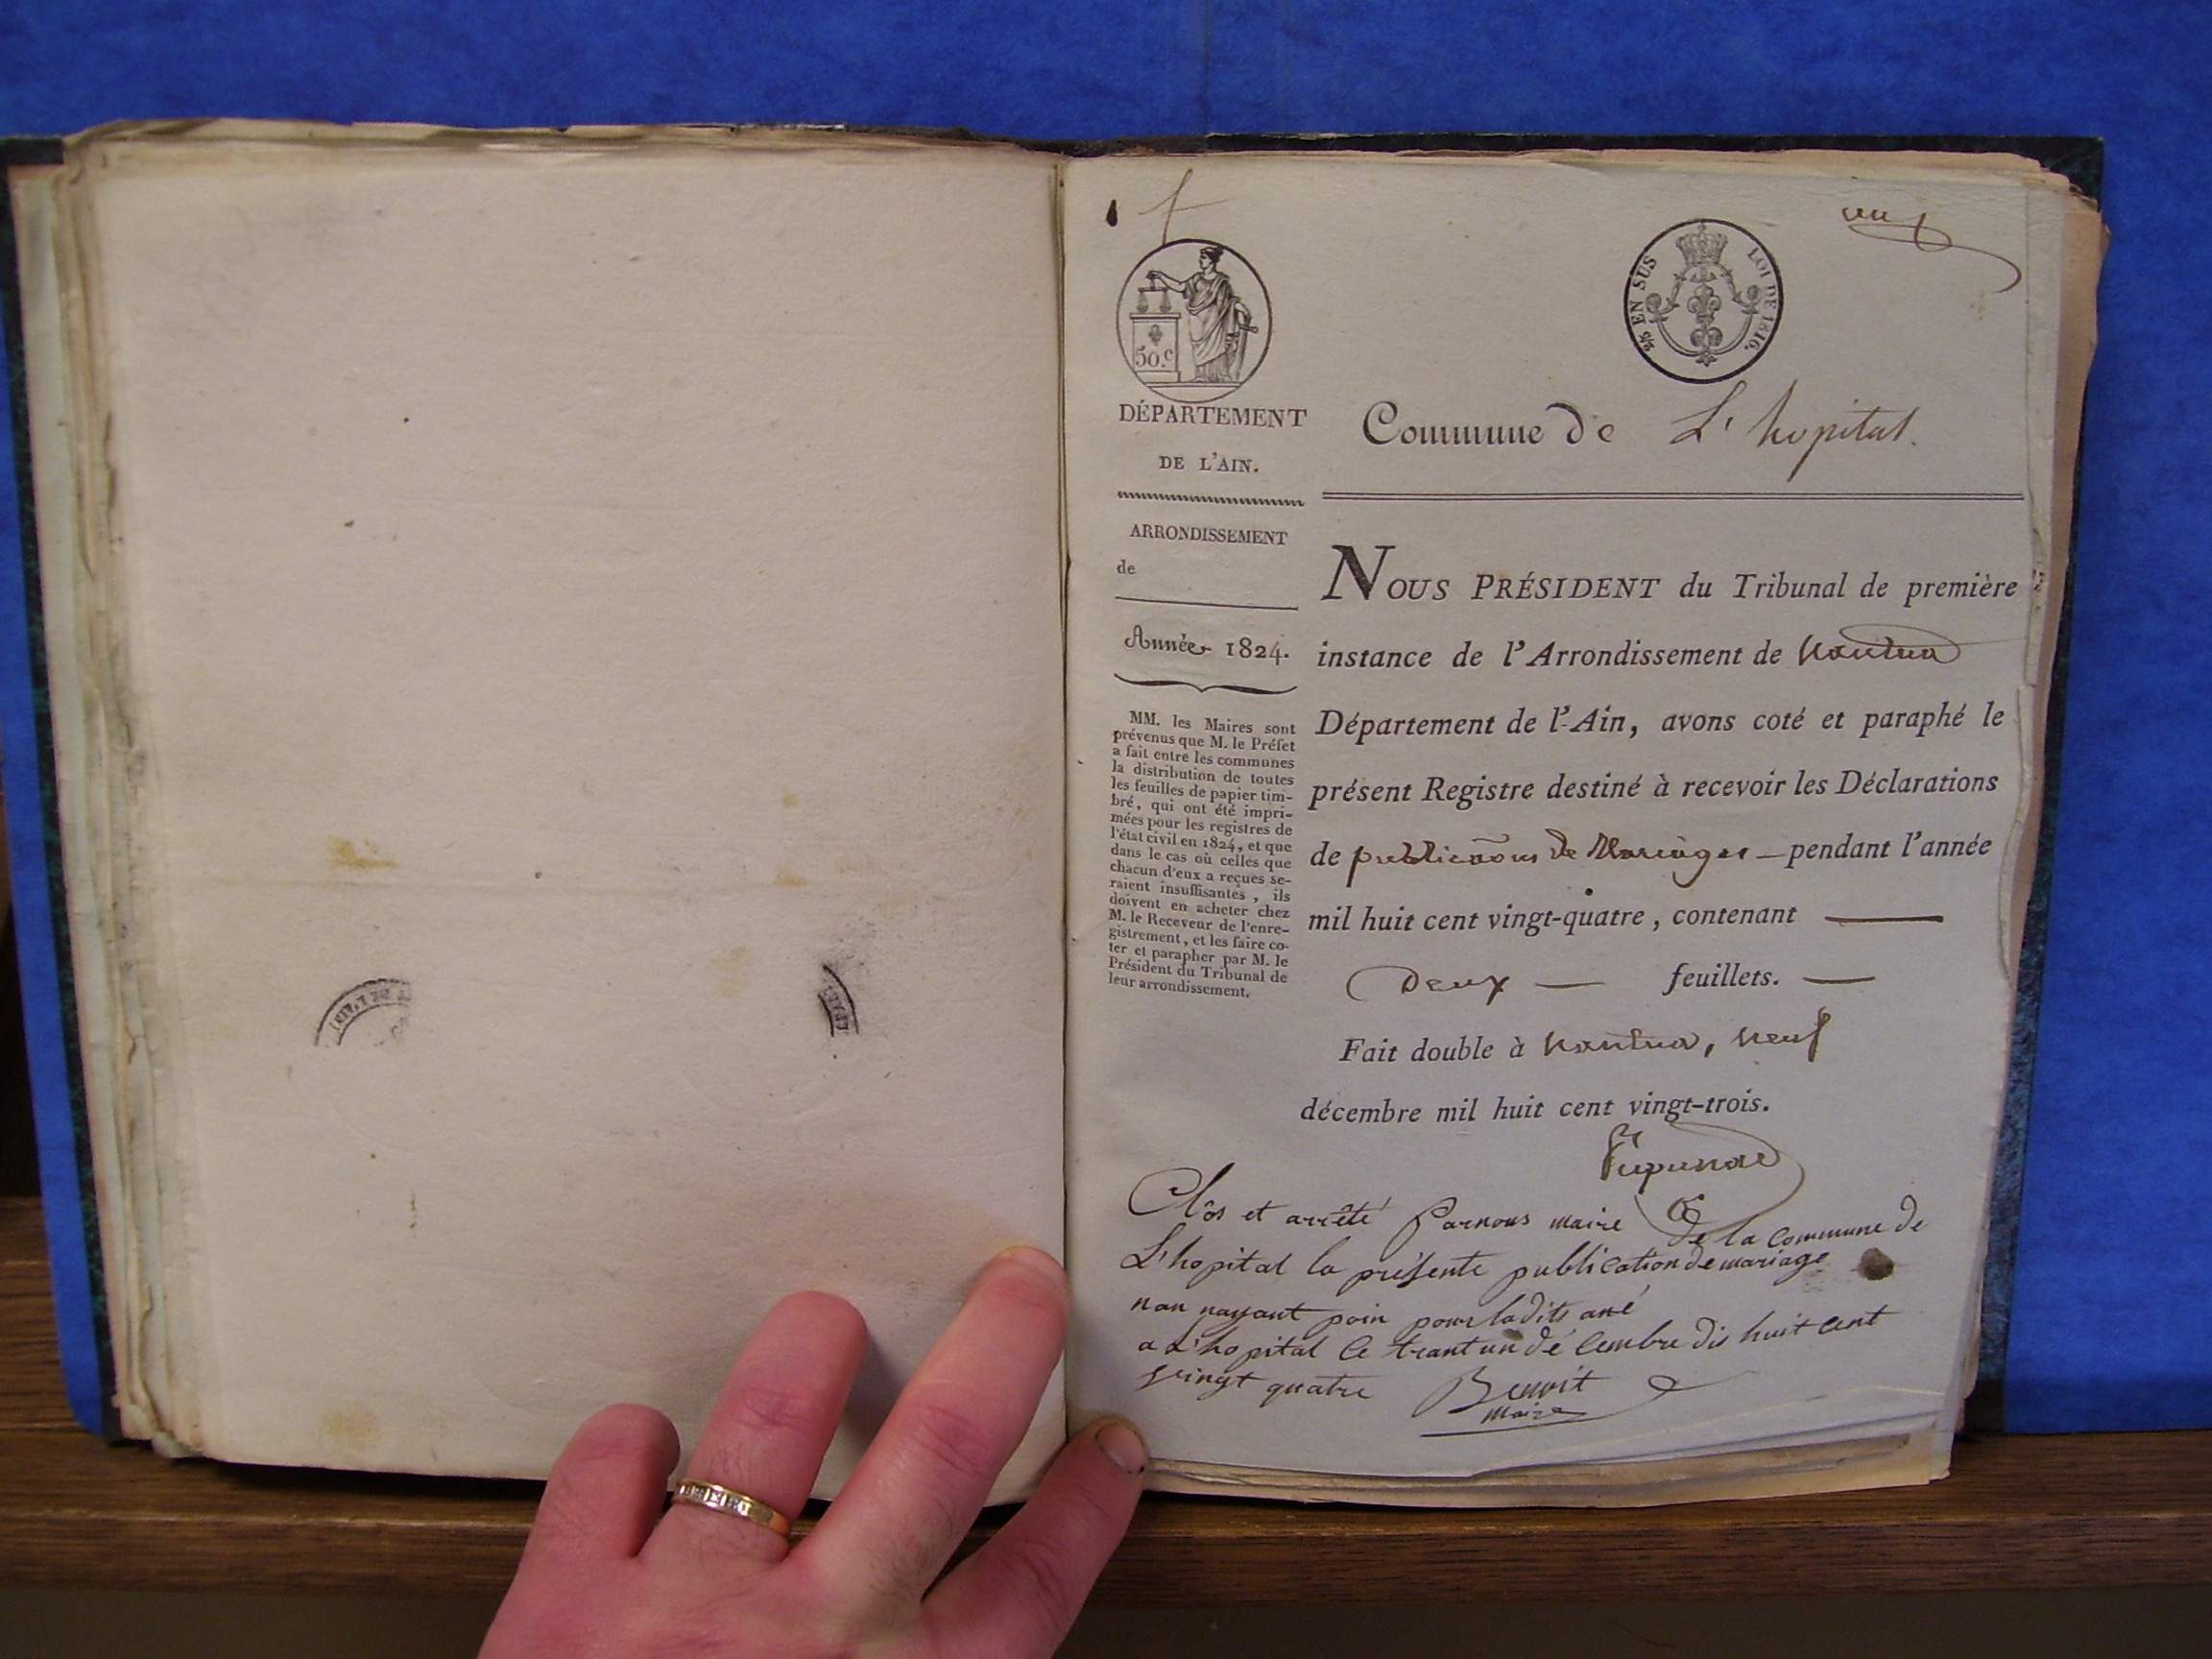 un
50.c
25 EN SUS LOI DE 1816.
DÉPARTEMENT
DE L'AIN.
Commune de L'hopital.
ARRONDISSEMENT
de
Année 1824.
MM. les Maires sont
prévenus que M. le Préfet
a fait entre les communes
la distribution de toutes
les feuilles de papier tim-
bré, qui ont été impri-
mées pour les registres de
l'état civil en 1824, et que
dans le cas où celles que
chacun d'eux a reçues se-
raient insuffisantes, ils
doivent en acheter chez
M. le Receveur de l'enre-
gistrement, et les faire co-
ter et parapher par M. le
Président du Tribunal de
leur arrondissement.
NOUS PRÉSIDENT du Tribunal de première
instance de l'Arrondissement de Nantua
Département de l'Ain, avons coté et paraphé le
présent Registre destiné à recevoir les Déclarations
de publicaõns de Mariages — pendant l'année
mil huit cent vingt-quatre, contenant —
Deux — feuillets. —
Fait double à Nantua, neuf
décembre mil huit cent vingt-trois.
Clôs et arrêté parnous maire de la commune de
L'hopital la présente publication de mariage
nan nayant poin pour ladite ané
a L'hopital le trantun décembre dis huit cent
vingt quatre Benoit
maire